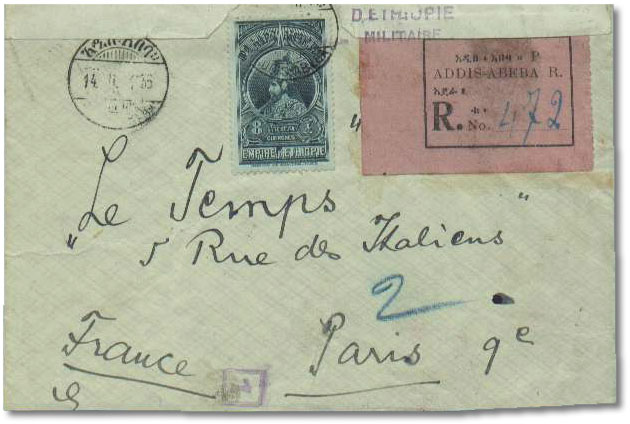 D'ETHIOPIE
MILITAIRE
አዲስ · አበባ ። P
ADDIS-ABEBA R.
አደራ ።
R. No. 472
8
EMPIRE D'ETHIOPIE
"Le Temps"
5 Rue des Italiens
2
France Paris 9e
1